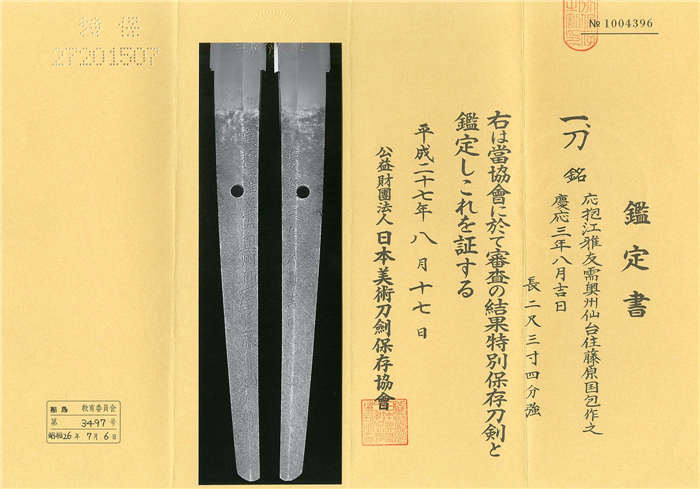 № 1004396
鑑定書
一、刀 銘 応抱江雅友需奥州仙台住藤原国包作之
慶応三年八月吉日
長二尺三寸四分強
右は當協會に於て審査の結果特別保存刀剣と
鑑定しこれを証する
平成二十七年八月十七日
公益財團法人日本美術刀劍保存協會
特保
27201507
福島 教育委員会
第 3497 号
昭和26年 7月 6日